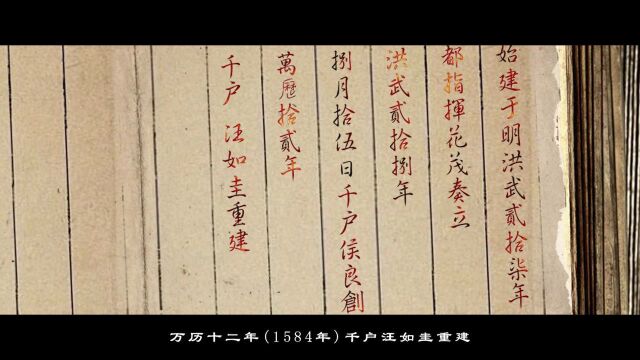 始建于明洪武貳拾柒年
都指揮花茂奏立
洪武貳拾捌年
捌月拾伍日千户侯良創
萬歷拾貳年
千户 汪如圭重建
万历十二年(1584年)千户汪如圭重建